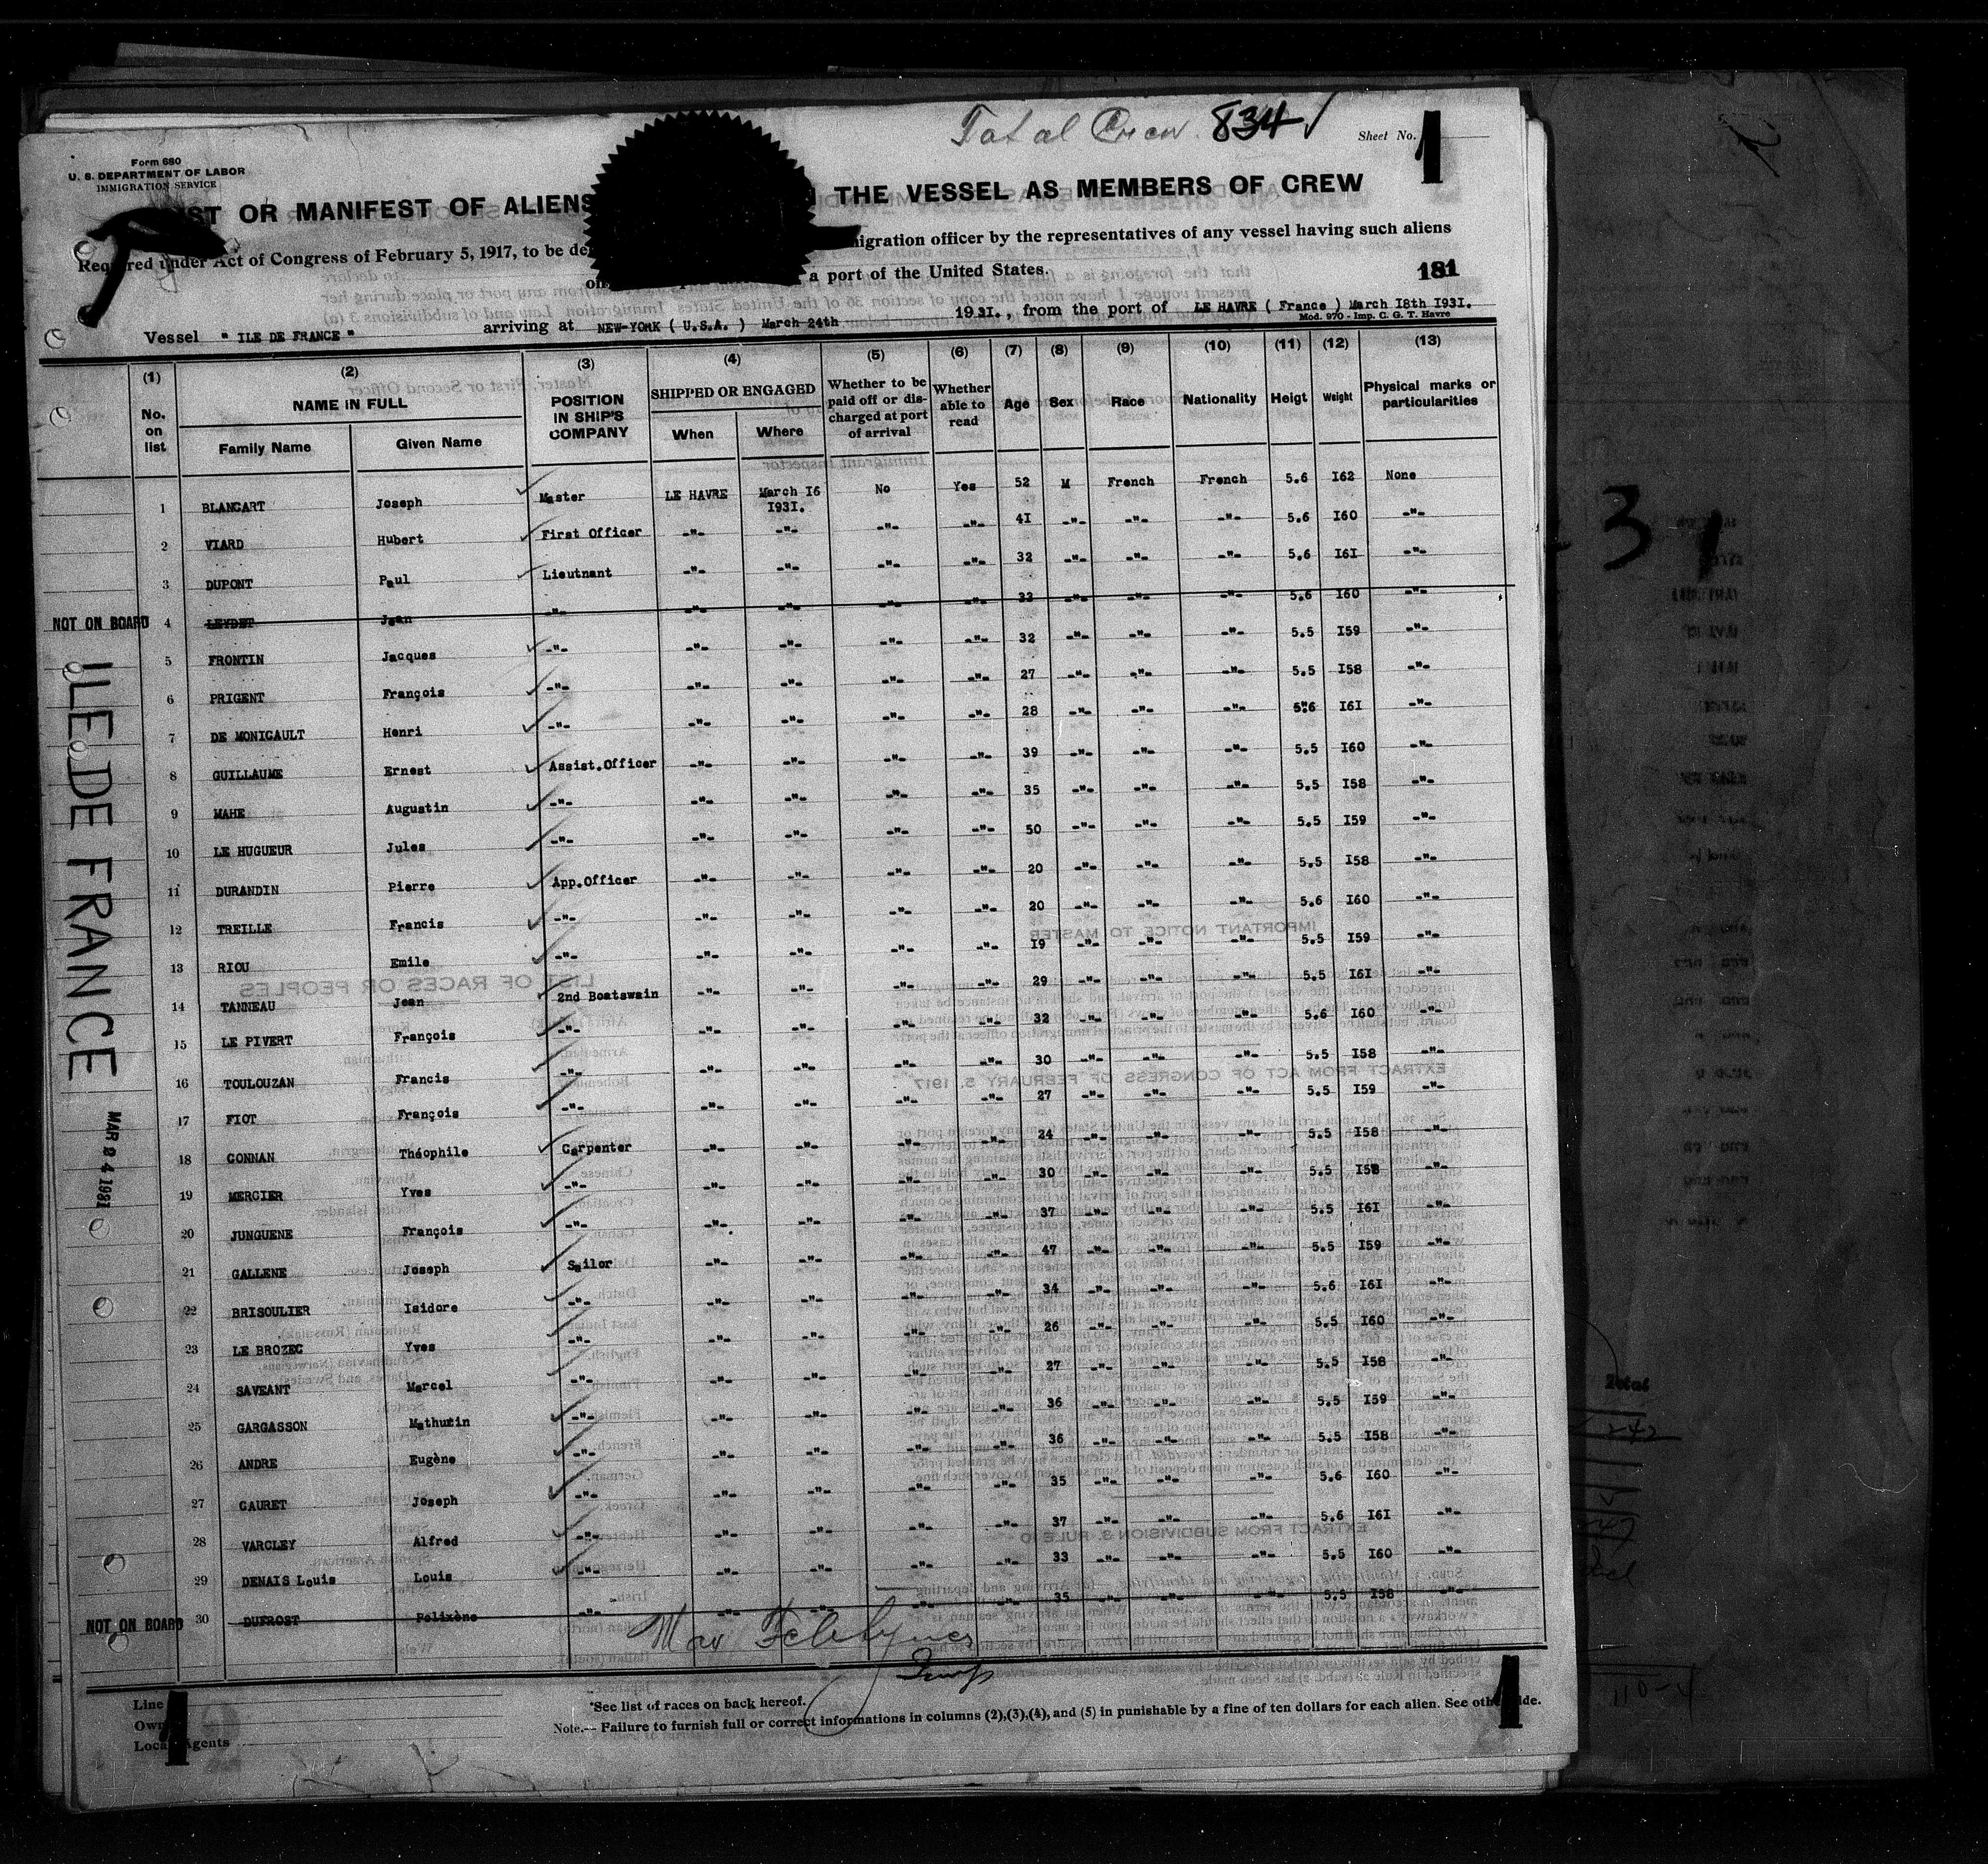 Total Crew 834
Sheet No. 1
Form 680
U. S. DEPARTMENT OF LABOR
IMMIGRATION SERVICE
OR MANIFEST OF ALIENS THE VESSEL AS MEMBERS OF CREW
Required under Act of Congress of February 5, 1917, to be officer by the representatives of any vessel having such aliens
a port of the United States.
181
Vessel " ILE DE FRANCE " arriving at NEW-YORK ( U.S.A. ) March 24th 1931., from the port of LE HAVRE ( France ) March I8th I93I.
Mod. 970 - Imp. C. G. T. Havre
(1) (2) (3) (4) (5) (6) (7) (8) (9) (10) (11) (12) (13)
No. on list NAME IN FULL POSITION IN SHIP'S COMPANY SHIPPED OR ENGAGED Whether to be paid off or discharged at port of arrival Whether able to read Age Sex Race Nationality Heigt Weight Physical marks or particularities
Family Name Given Name When Where
1 BLANCART Joseph Master LE HAVRE March I6 I93I. No Yes 52 M French French 5.6 I62 None
2 VIARD Hubert First Officer -"- -"- -"- -"- 4I -"- -"- -"- 5.6 I60 -"-
3 DUPONT Paul Lieutnant -"- -"- -"- -"- 32 -"- -"- -"- 5.6 I6I -"-
NOT ON BOARD 4 LEYDET Jean -"- -"- -"- -"- -"- 33 -"- -"- -"- 5.6 I60 -"-
5 FRONTIN Jacques -"- -"- -"- -"- -"- 32 -"- -"- -"- 5.5 I59 -"-
6 PRIGENT François -"- -"- -"- -"- -"- 27 -"- -"- -"- 5.5 I58 -"-
7 DE MONICAULT Henri -"- -"- -"- -"- -"- 28 -"- -"- -"- 5.6 I6I -"-
8 GUILLAUME Ernest Assist.Officer -"- -"- -"- -"- 39 -"- -"- -"- 5.5 I60 -"-
9 MAHE Augustin -"- -"- -"- -"- -"- 35 -"- -"- -"- 5.5 I58 -"-
10 LE HUGUEUR Jules -"- -"- -"- -"- -"- 50 -"- -"- -"- 5.5 I59 -"-
11 DURANDIN Pierre App.Officer -"- -"- -"- -"- 20 -"- -"- -"- 5.5 I58 -"-
12 TREILLE Francis -"- -"- -"- -"- -"- 20 -"- -"- -"- 5.6 I60 -"-
13 RIOU Emile -"- -"- -"- -"- -"- I9 -"- -"- -"- 5.5 I59 -"-
14 TANNEAU Jean 2nd Boatswain -"- -"- -"- -"- 29 -"- -"- -"- 5.5 I6I -"-
15 LE PIVERT François -"- -"- -"- -"- -"- 32 -"- -"- -"- 5.6 I60 -"-
16 TOULOUZAN Francis -"- -"- -"- -"- -"- 30 -"- -"- -"- 5.5 I58 -"-
17 FIOT François -"- -"- -"- -"- -"- 27 -"- -"- -"- 5.5 I59 -"-
18 CONNAN Théophile Carpenter -"- -"- -"- -"- 24 -"- -"- -"- 5.5 I58 -"-
19 MERCIER Yves -"- -"- -"- -"- -"- 30 -"- -"- -"- 5.5 I58 -"-
20 JUNGUENE François -"- -"- -"- -"- -"- 37 -"- -"- -"- 5.5 I6I -"-
21 GALLENE Joseph Sailor -"- -"- -"- -"- 47 -"- -"- -"- 5.5 I59 -"-
22 BRISOULIER Isidore -"- -"- -"- -"- -"- 34 -"- -"- -"- 5.6 I6I -"-
23 LE BROZEC Yves -"- -"- -"- -"- -"- 26 -"- -"- -"- 5.5 I60 -"-
24 SAVEANT Marcel -"- -"- -"- -"- -"- 27 -"- -"- -"- 5.5 I58 -"-
25 GARGASSON Mathurin -"- -"- -"- -"- -"- 36 -"- -"- -"- 5.5 I59 -"-
26 ANDRE Eugène -"- -"- -"- -"- -"- 36 -"- -"- -"- 5.5 I58 -"-
27 GAURET Joseph -"- -"- -"- -"- -"- 35 -"- -"- -"- 5.6 I60 -"-
28 VARCLEY Alfred -"- -"- -"- -"- -"- 37 -"- -"- -"- 5.6 I6I -"-
29 DENAIS Louis Louis -"- -"- -"- -"- -"- 33 -"- -"- -"- 5.5 I60 -"-
NOT ON BOARD 30 DUFROST Polixène -"- -"- -"- -"- -"- 35 -"- -"- -"- 5.5 I58 -"-
ILE DE FRANCE
MAR 24 1931
Line
Local Agents
*See list of races on back hereof.
Note.— Failure to furnish full or correct informations in columns (2),(3),(4), and (5) in punishable by a fine of ten dollars for each alien. See other side.
1 1
Total